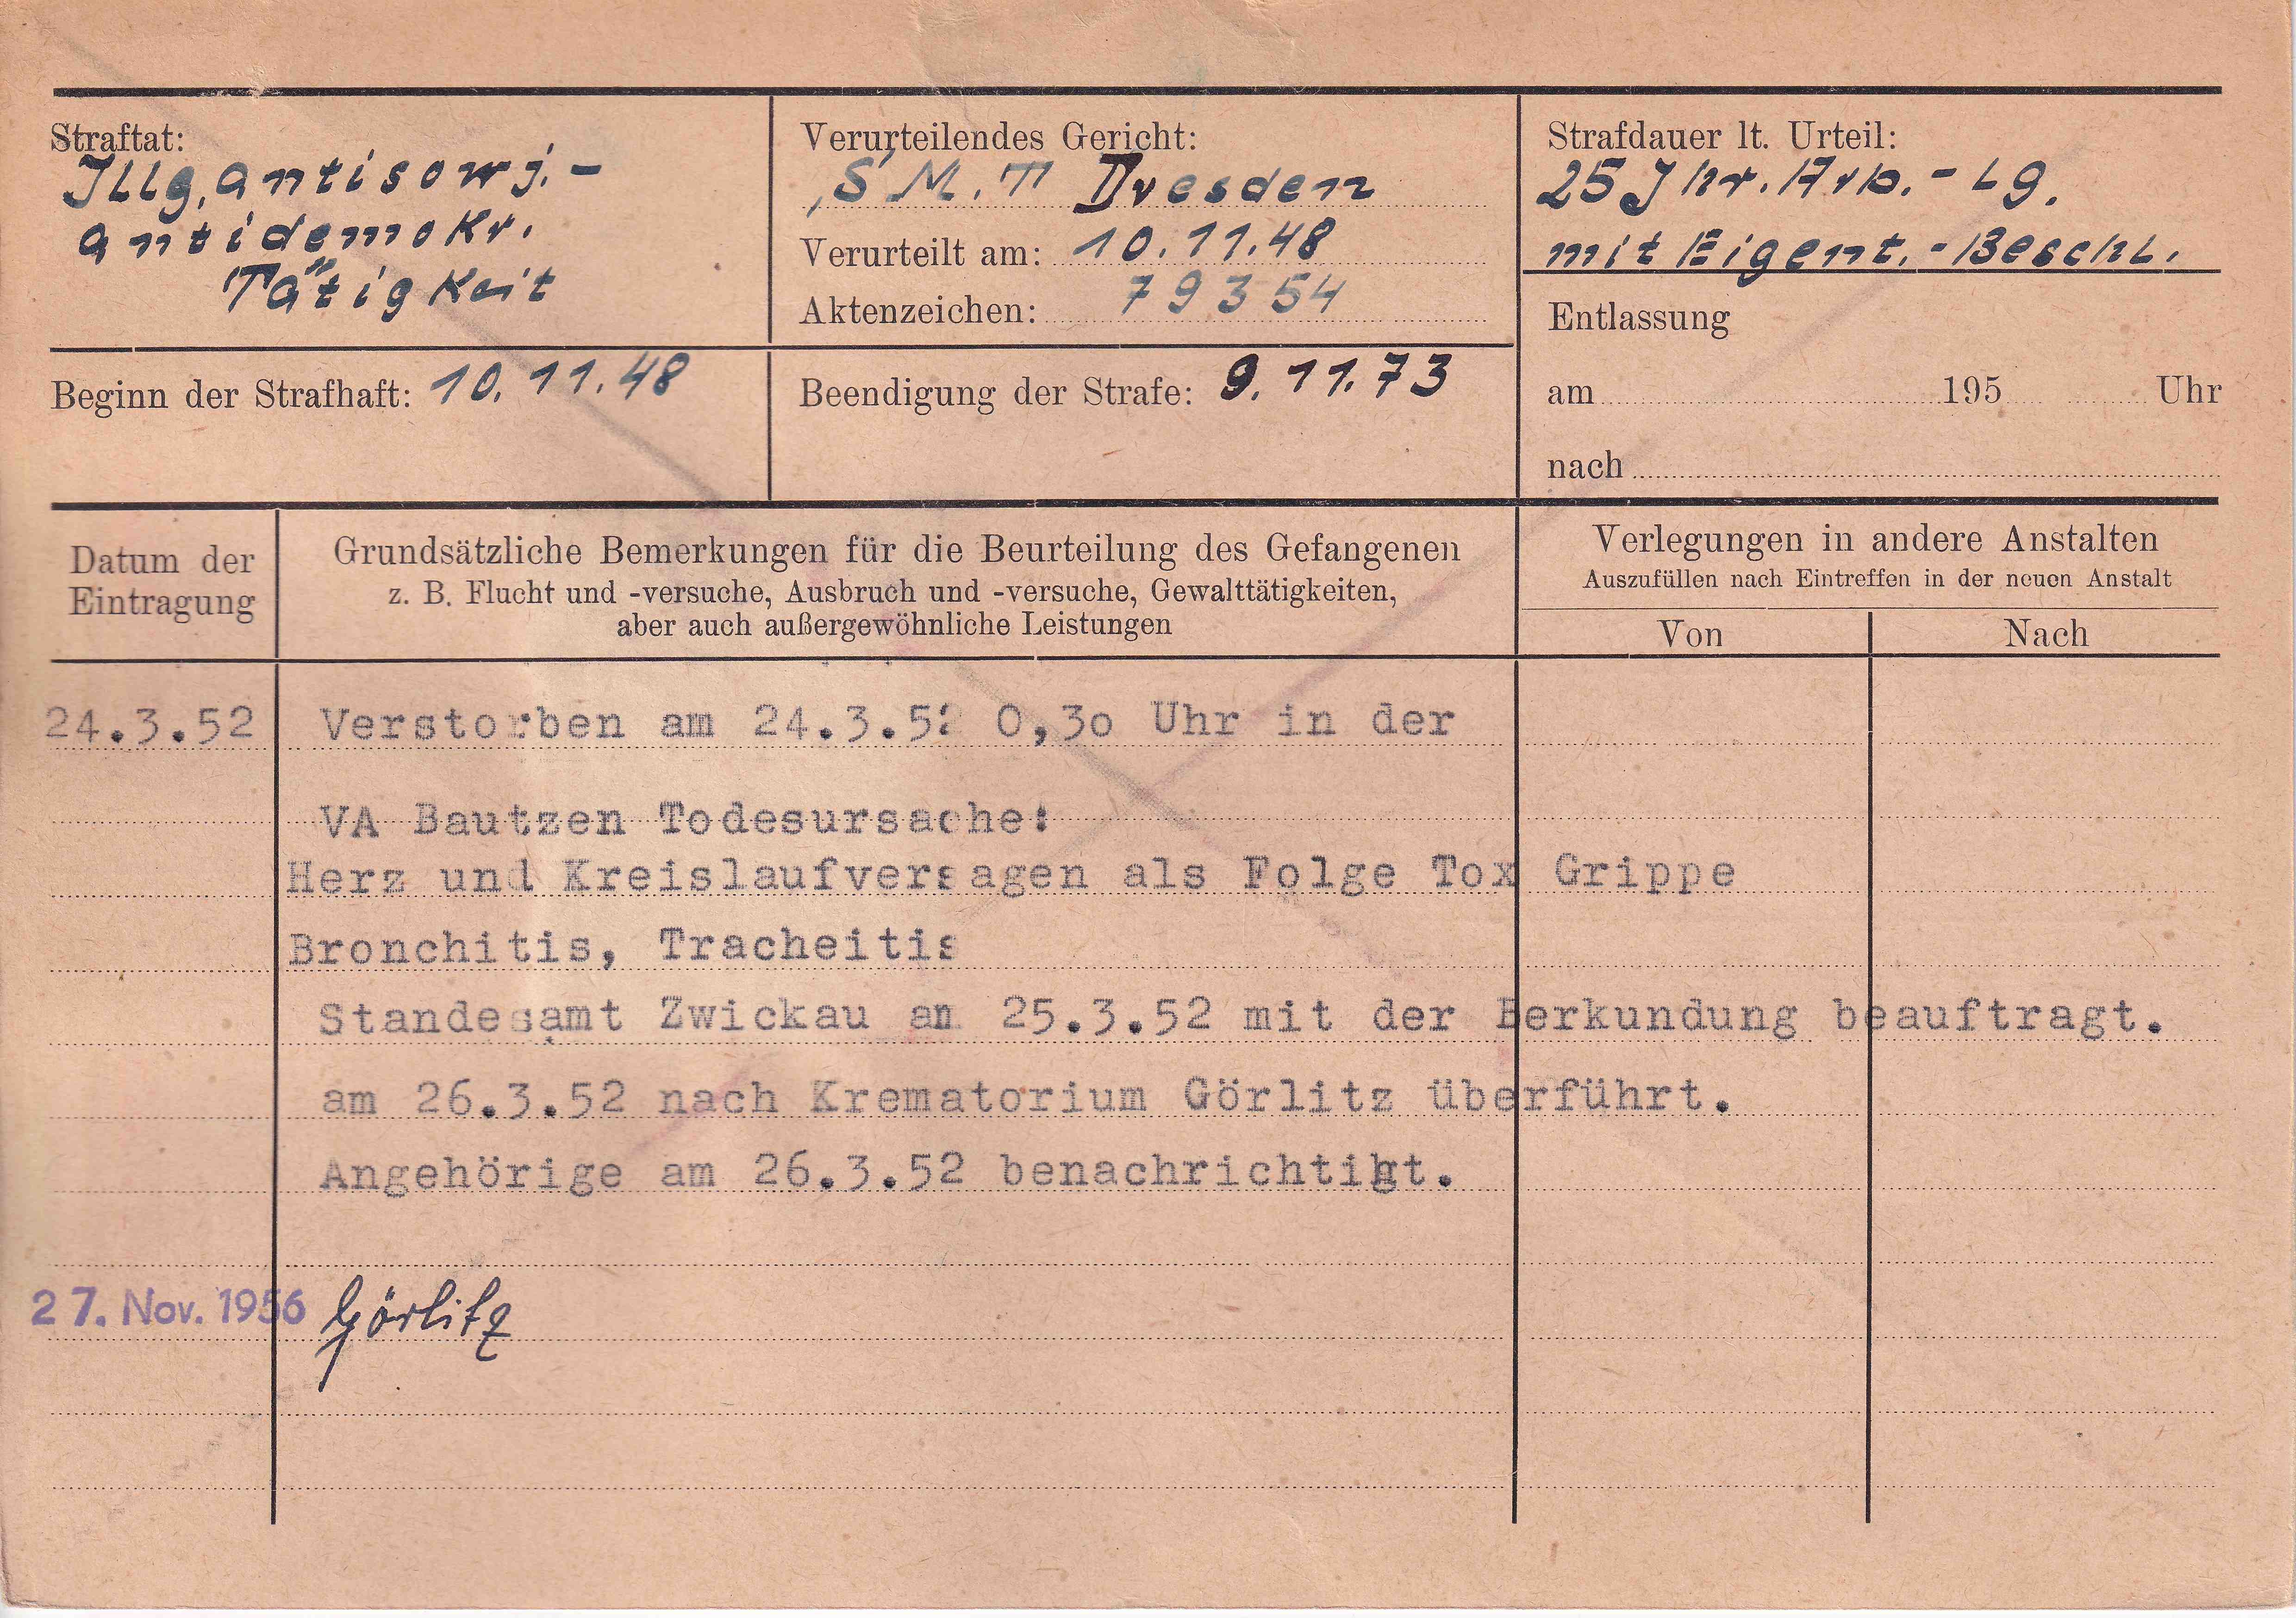 Straftat:
Illg. antisowj.-
antidemokr.
Tätigkeit
Verurteilendes Gericht:
S.M.T Dresden
Verurteilt am: 10.11.48
Aktenzeichen: 79354
Strafdauer lt. Urteil:
25 Jhr. Arb.-Lg.
mit Eigent.-Beschl.
Beginn der Strafhaft: 10.11.48
Beendigung der Strafe: 9.11.73
Entlassung
am 195 Uhr
nach
Datum der
Eintragung
Grundsätzliche Bemerkungen für die Beurteilung des Gefangenen
z. B. Flucht und -versuche, Ausbruch und -versuche, Gewalttätigkeiten,
aber auch außergewöhnliche Leistungen
Verlegungen in andere Anstalten
Auszufüllen nach Eintreffen in der neuen Anstalt
Von Nach
24.3.52 Verstorben am 24.3.52 0,30 Uhr in der
VA Bautzen Todesursache:
Herz und Kreislaufversagen als Folge Tox Grippe
Bronchitis, Tracheitis
Standesamt Zwickau am 25.3.52 mit der Berkundung beauftragt.
am 26.3.52 nach Krematorium Görlitz überführt.
Angehörige am 26.3.52 benachrichtigt.
27. Nov. 1956 Görlitz